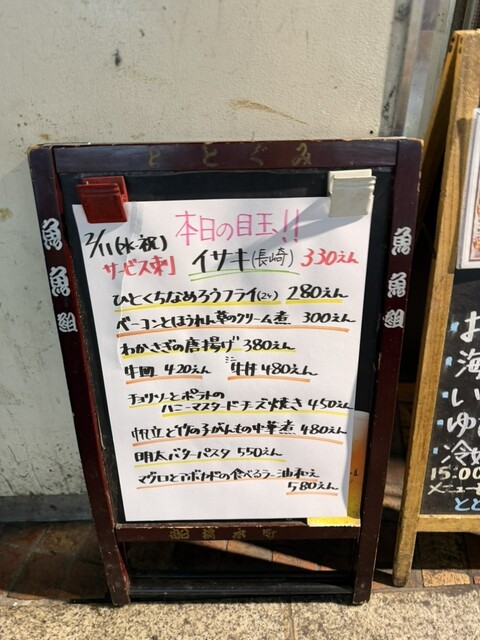 ととぐみ
魚魚組
魚魚組
本日の目玉!!
2/11(水・祝)
サービス刺」 イサキ(長崎) 330えん
ひとくちなめろうフライ(2ヶ) 280えん
ベーコンとほうれん草のクリーム煮 300えん
わかさぎの唐揚げ 380えん
420えん ミニ牛丼 480えん
チョリソーとポテトの
ハニーマスタードチーズ焼き 450えん
帆立と竹の子がんもの中華煮 480えん
明太バターパスタ 550えん
マグロとアボカドの食べるラー油和え
580えん
お
海
い
ゆ
冷
15:00
メニュー
とと